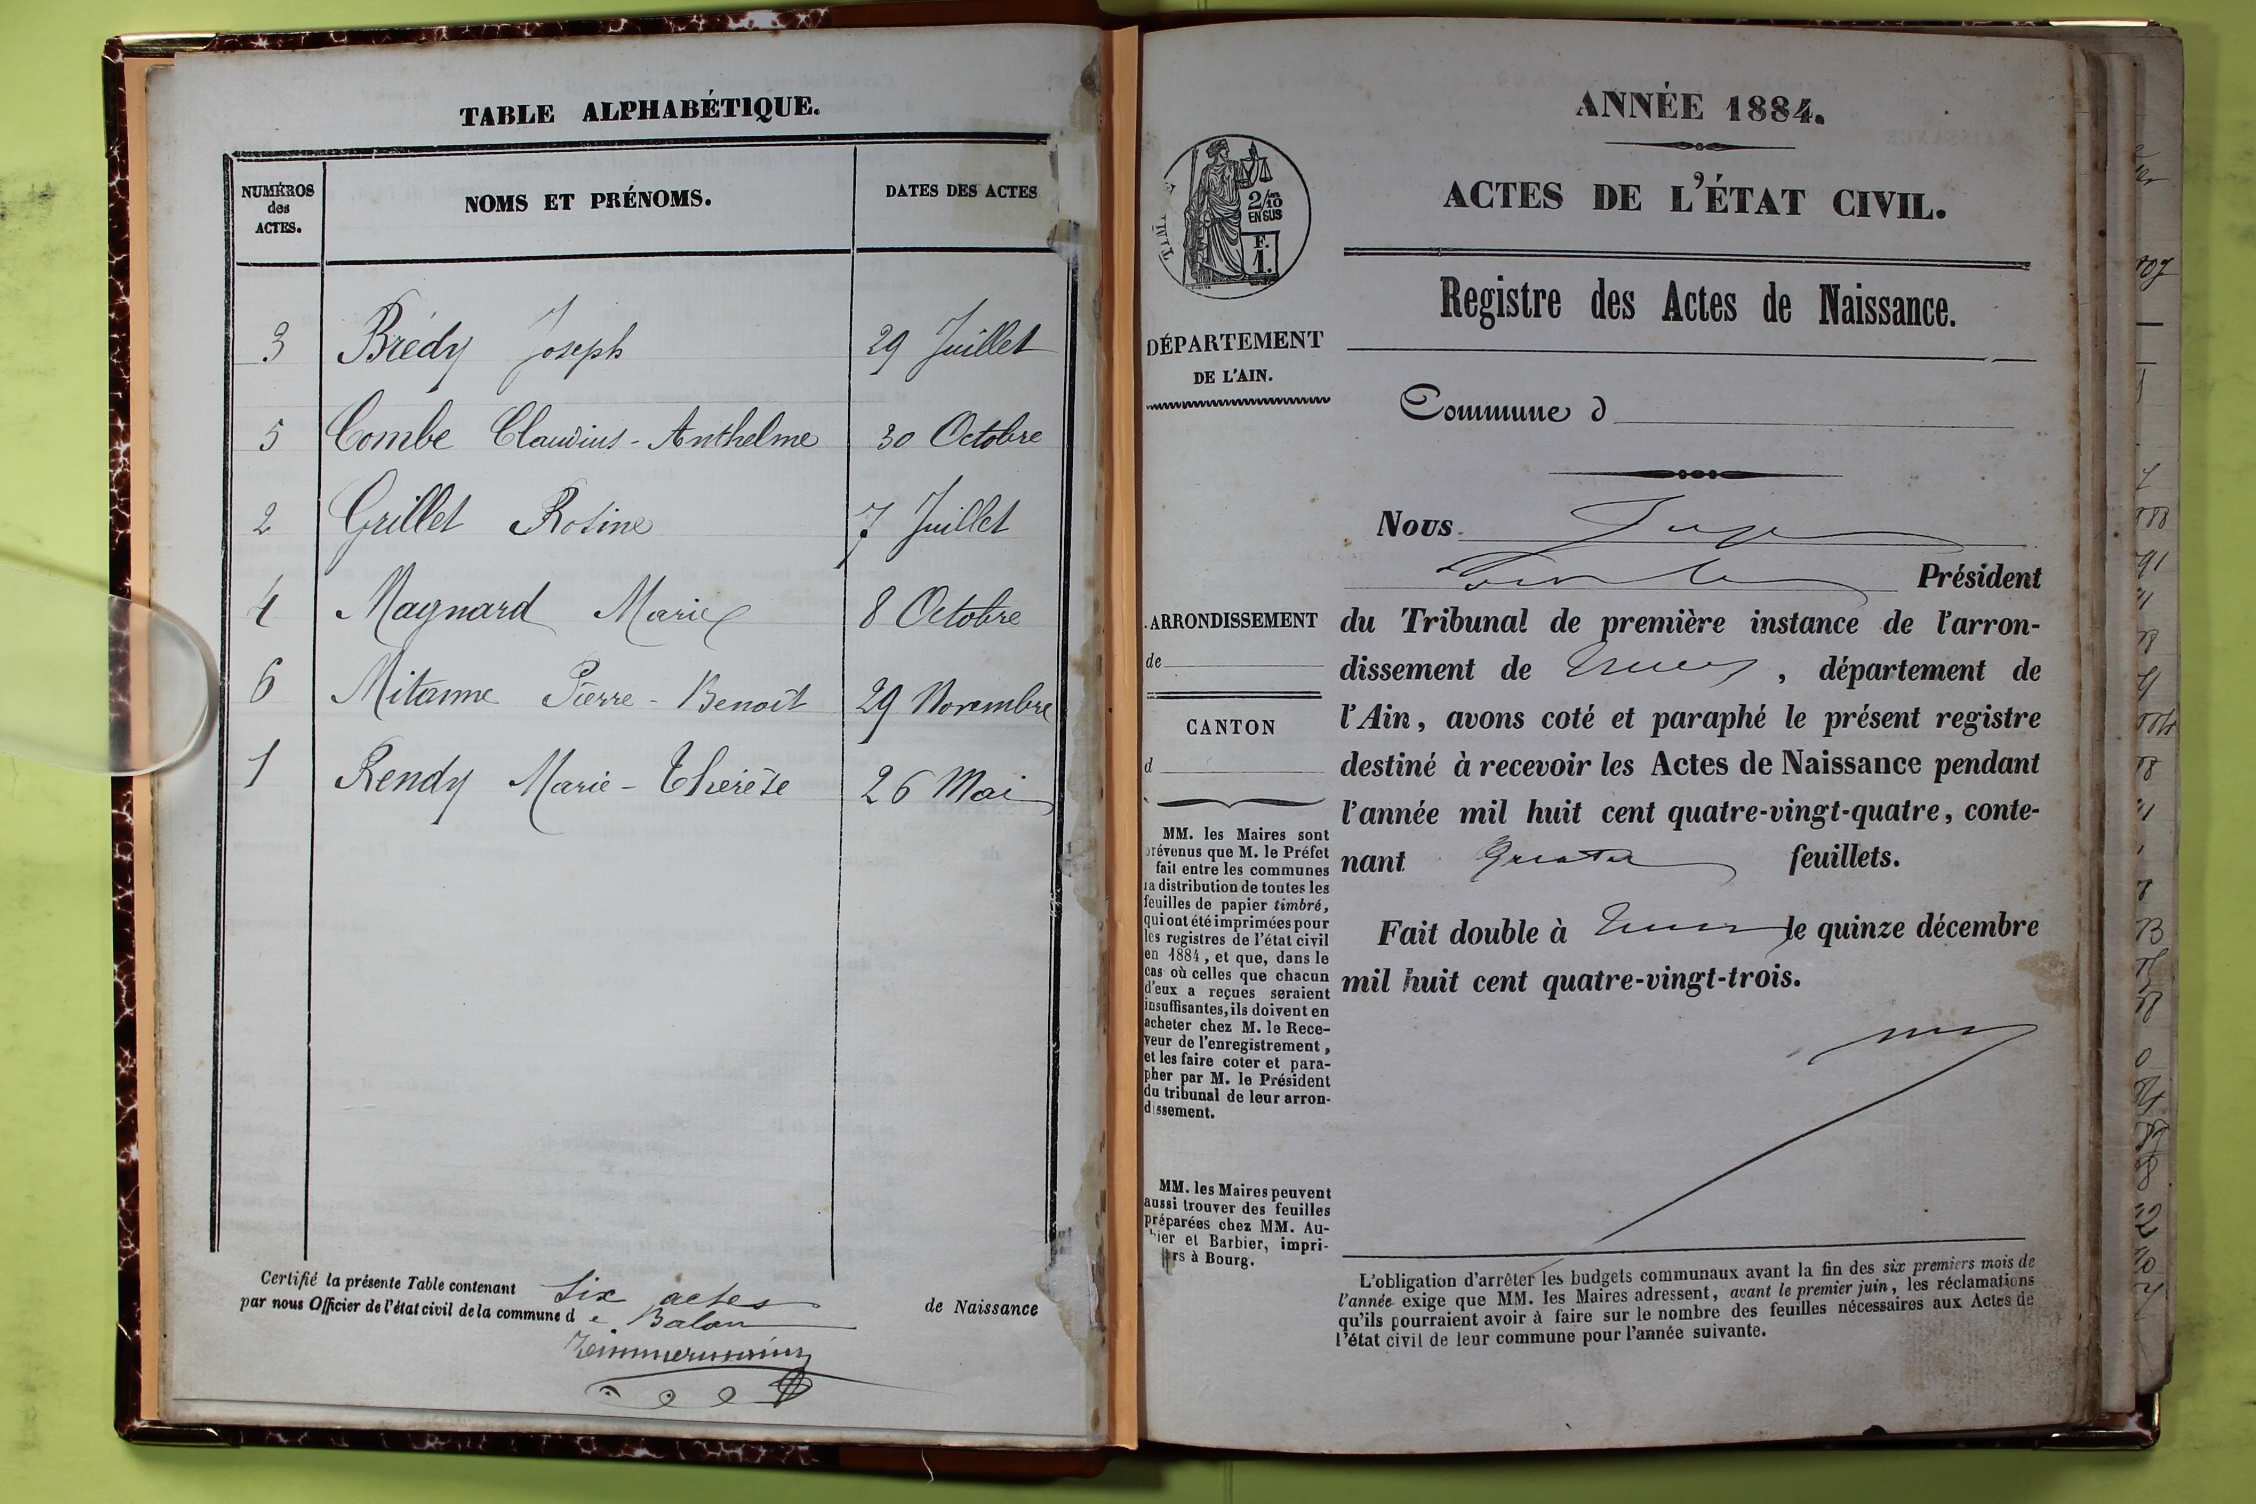 TABLE ALPHABÉTIQUE.
NUMÉROS des ACTES. NOMS ET PRÉNOMS. DATES DES ACTES
3 Brédy Joseph 29 Juillet
5 Combe Claudius-Anthelme 30 Octobre
2 Grillet Rosine 7 Juillet
4 Maynard Marie 8 Octobre
6 Mitanne Pierre-Benoît 29 Novembre
1 Rendy Marie-Thérèse 26 Mai
Certifié la présente Table contenant Six actes de Naissance
par nous Officier de l'état civil de la commune de Balan
Zimmermann
ANNÉE 1884.
ACTES DE L'ÉTAT CIVIL.
2/10
EN SUS
F.
1.
Registre des Actes de Naissance.
DÉPARTEMENT
DE L'AIN.
Commune d
Nous Juge
Président
ARRONDISSEMENT
de
CANTON
d
du Tribunal de première instance de l'arron-
dissement de Trévoux, département de
l'Ain, avons coté et paraphé le présent registre
destiné à recevoir les Actes de Naissance pendant
l'année mil huit cent quatre-vingt-quatre, conte-
nant quatre feuillets.
Fait double à Trévoux le quinze décembre
mil huit cent quatre-vingt-trois.
MM. les Maires sont
prévenus que M. le Préfet
fait entre les communes
la distribution de toutes les
feuilles de papier timbré,
qui ont été imprimées pour
les registres de l'état civil
en 1884, et que, dans le
cas où celles que chacun
d'eux a reçues seraient
insuffisantes, ils doivent en
acheter chez M. le Rece-
veur de l'enregistrement,
et les faire coter et para-
pher par M. le Président
du tribunal de leur arron-
dissement.
MM. les Maires peuvent
aussi trouver des feuilles
préparées chez MM. Au-
ier et Barbier, impri-
rs à Bourg.
L'obligation d'arrêter les budgets communaux avant la fin des six premiers mois de
l'année exige que MM. les Maires adressent, avant le premier juin, les réclamations
qu'ils pourraient avoir à faire sur le nombre des feuilles nécessaires aux Actes de
l'état civil de leur commune pour l'année suivante.